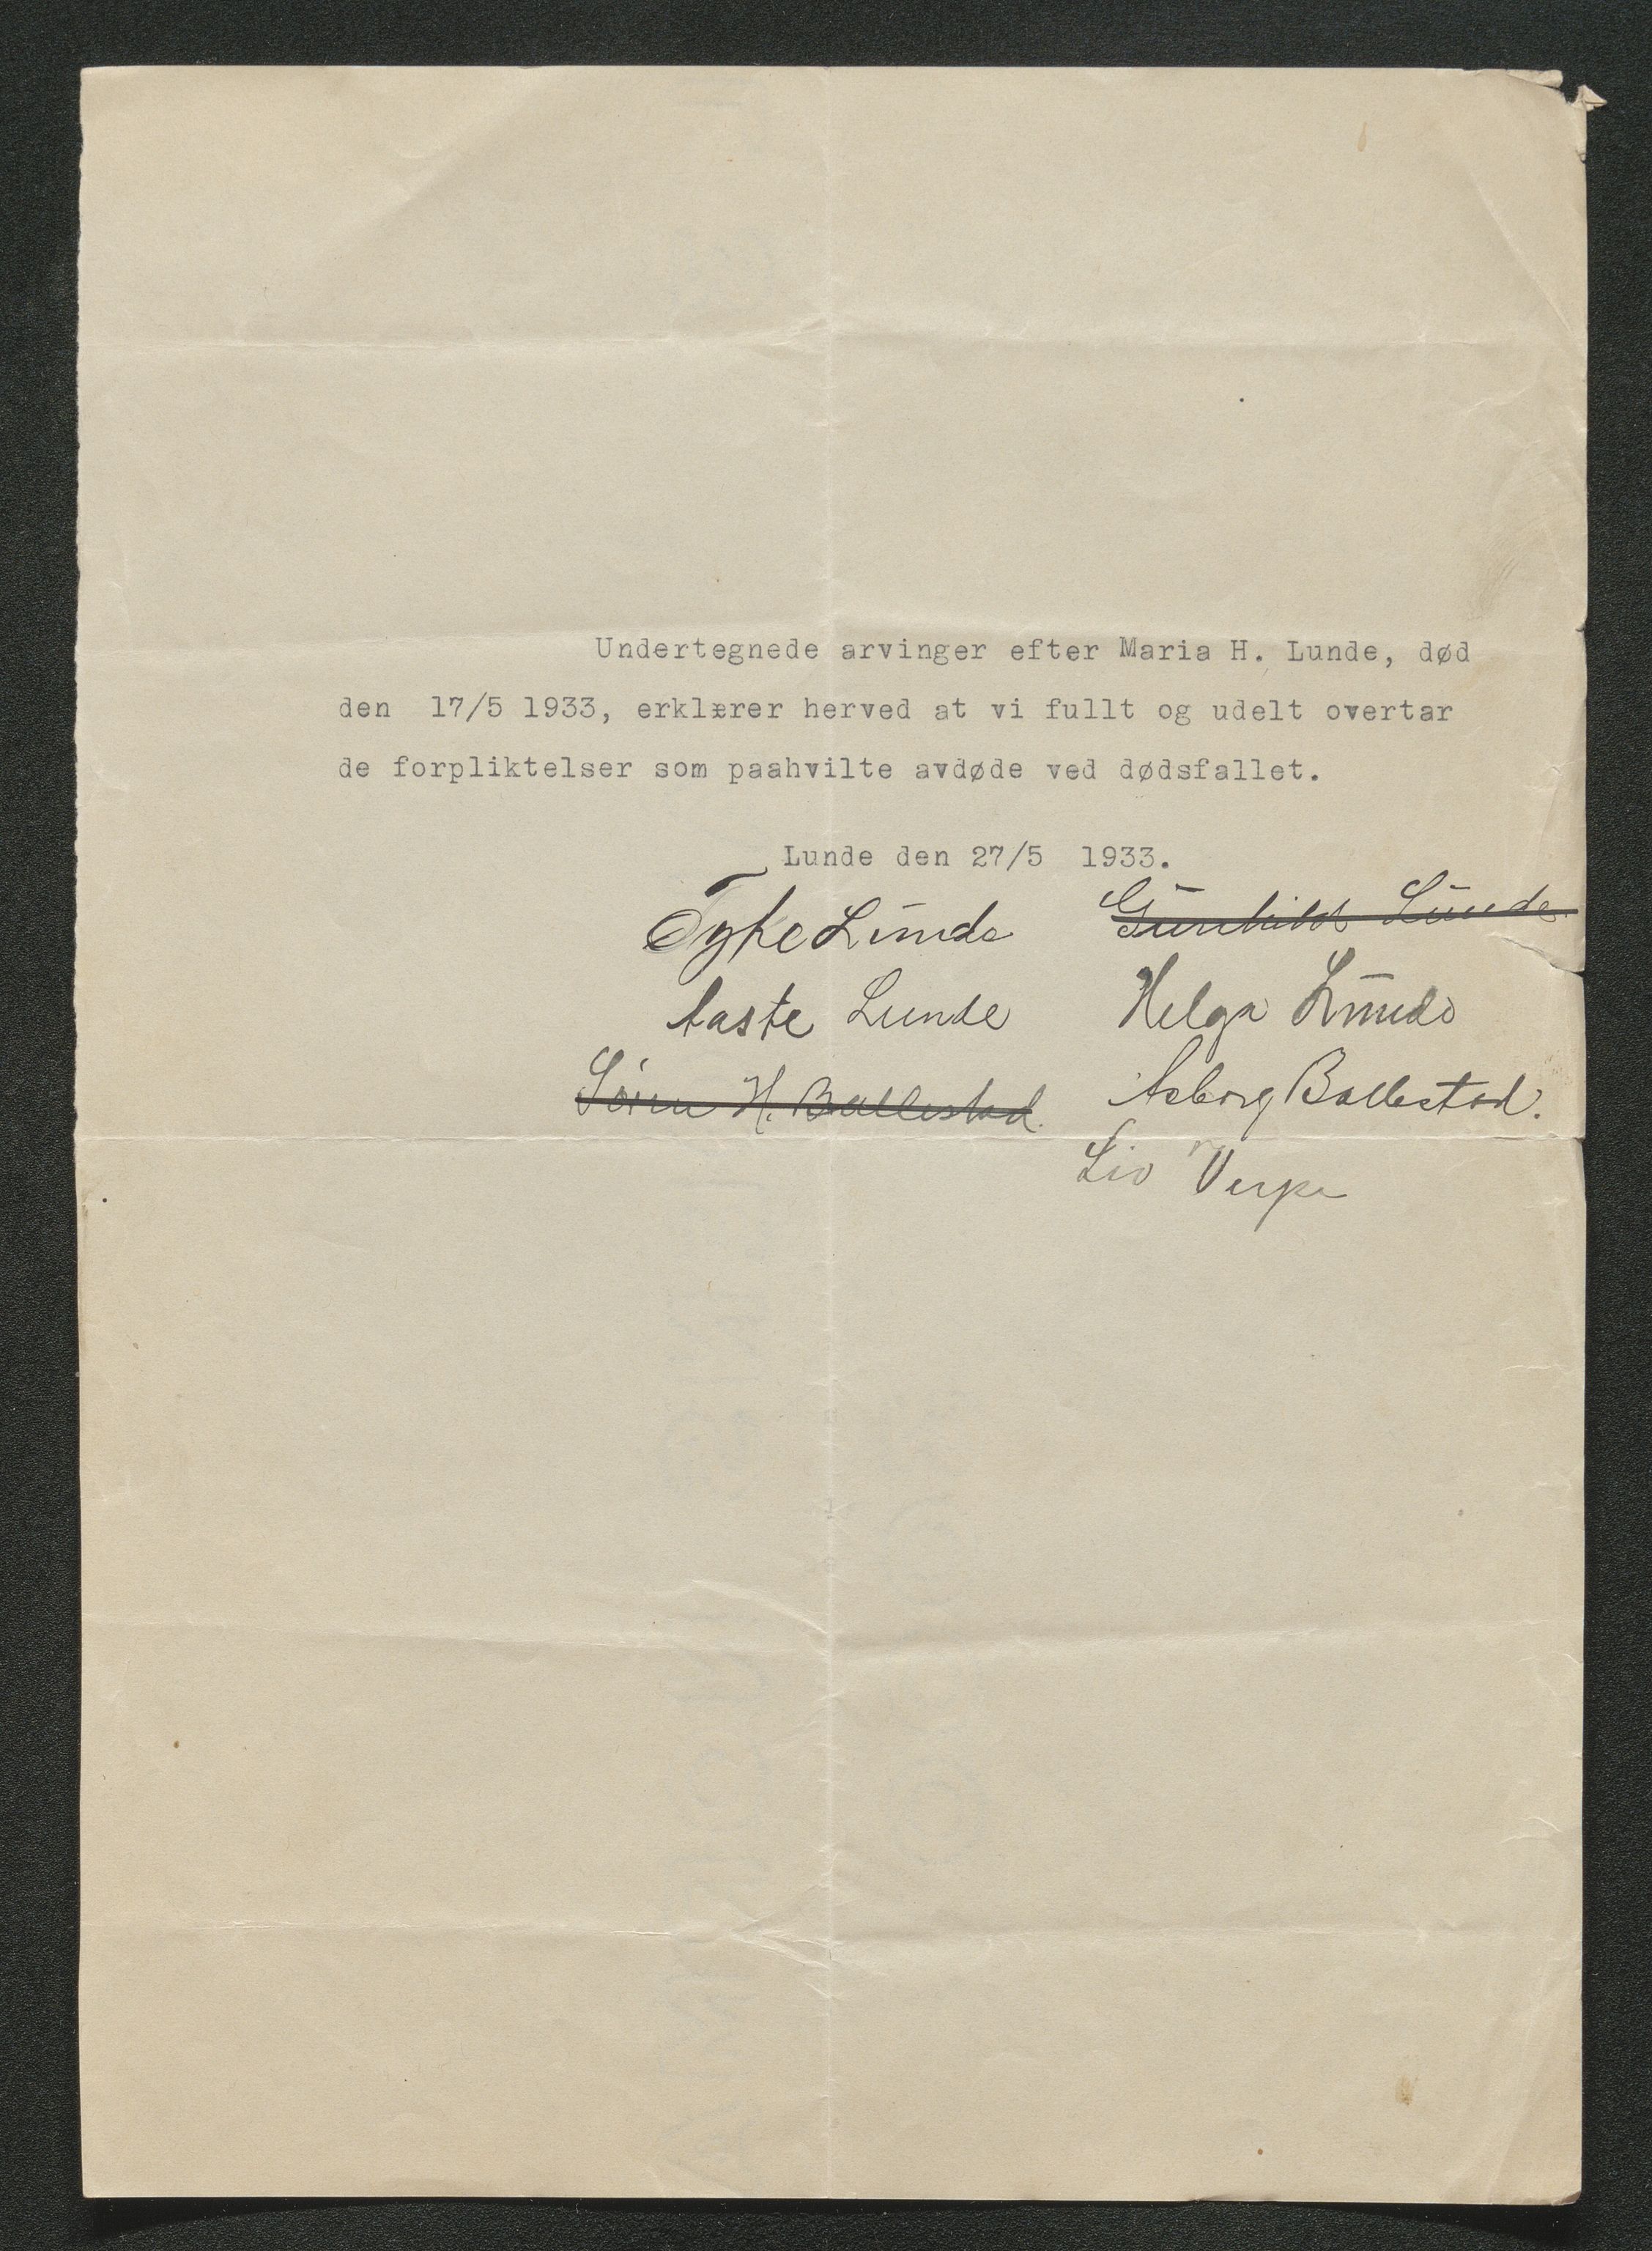 Undertegnede arvinger efter Maria H. Lunde, død
den 17/5 1933, erklærer herved at vi fullt og udelt overtar
de forpliktelser som paahvilte avdøde ved dødsfallet.
Lunde den 27/5 1933.
Tyke Lunde Gunhild Lunde
Aaste Lunde Helga Lunde
H. Ballestad. Asborg Ballestad.
Liv Verpe